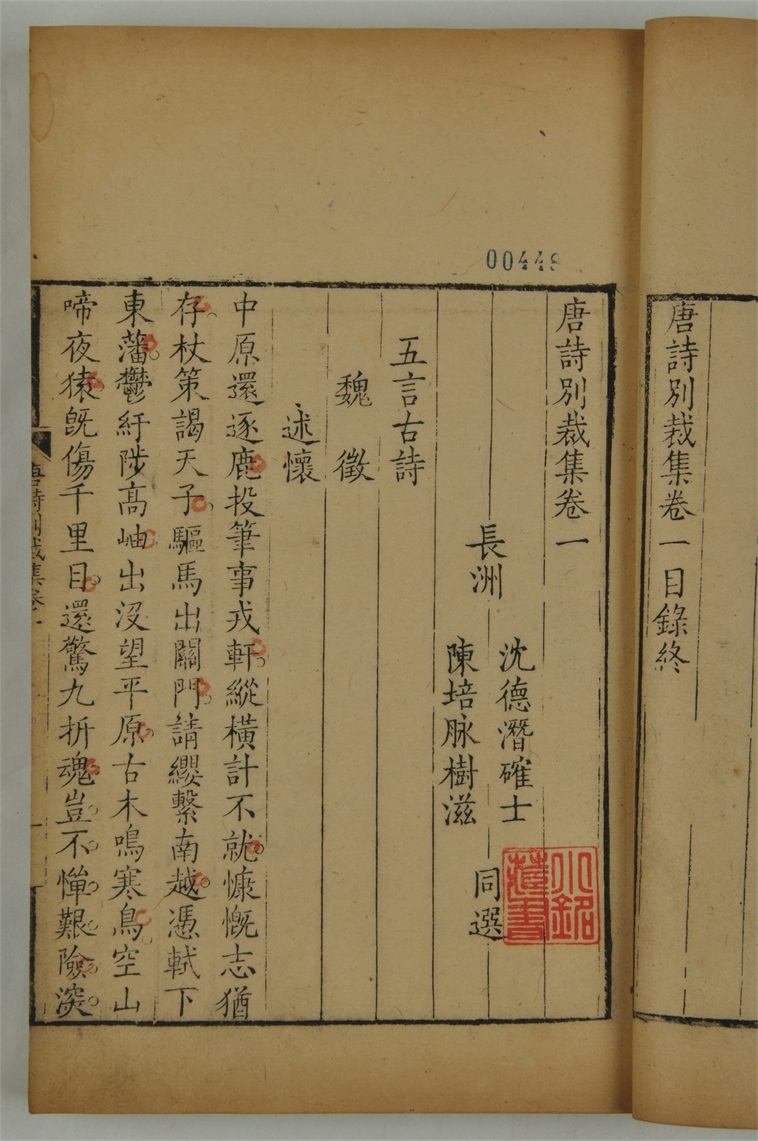 唐詩別裁集卷一目錄終
00448
唐詩別裁集卷一
長洲
沈德潛確士
陳培脉樹滋
同選
五言古詩
魏徵
述懷
中原還逐鹿投筆事戎軒縱橫計不就慷慨志猶
存杖策謁天子驅馬出關門請纓繫南越憑軾下
東藩鬱紆陟高岫出沒望平原古木鳴寒鳥空山
啼夜猿既傷千里目還驚九折魂豈不憚艱險深
唐詩別裁集卷一